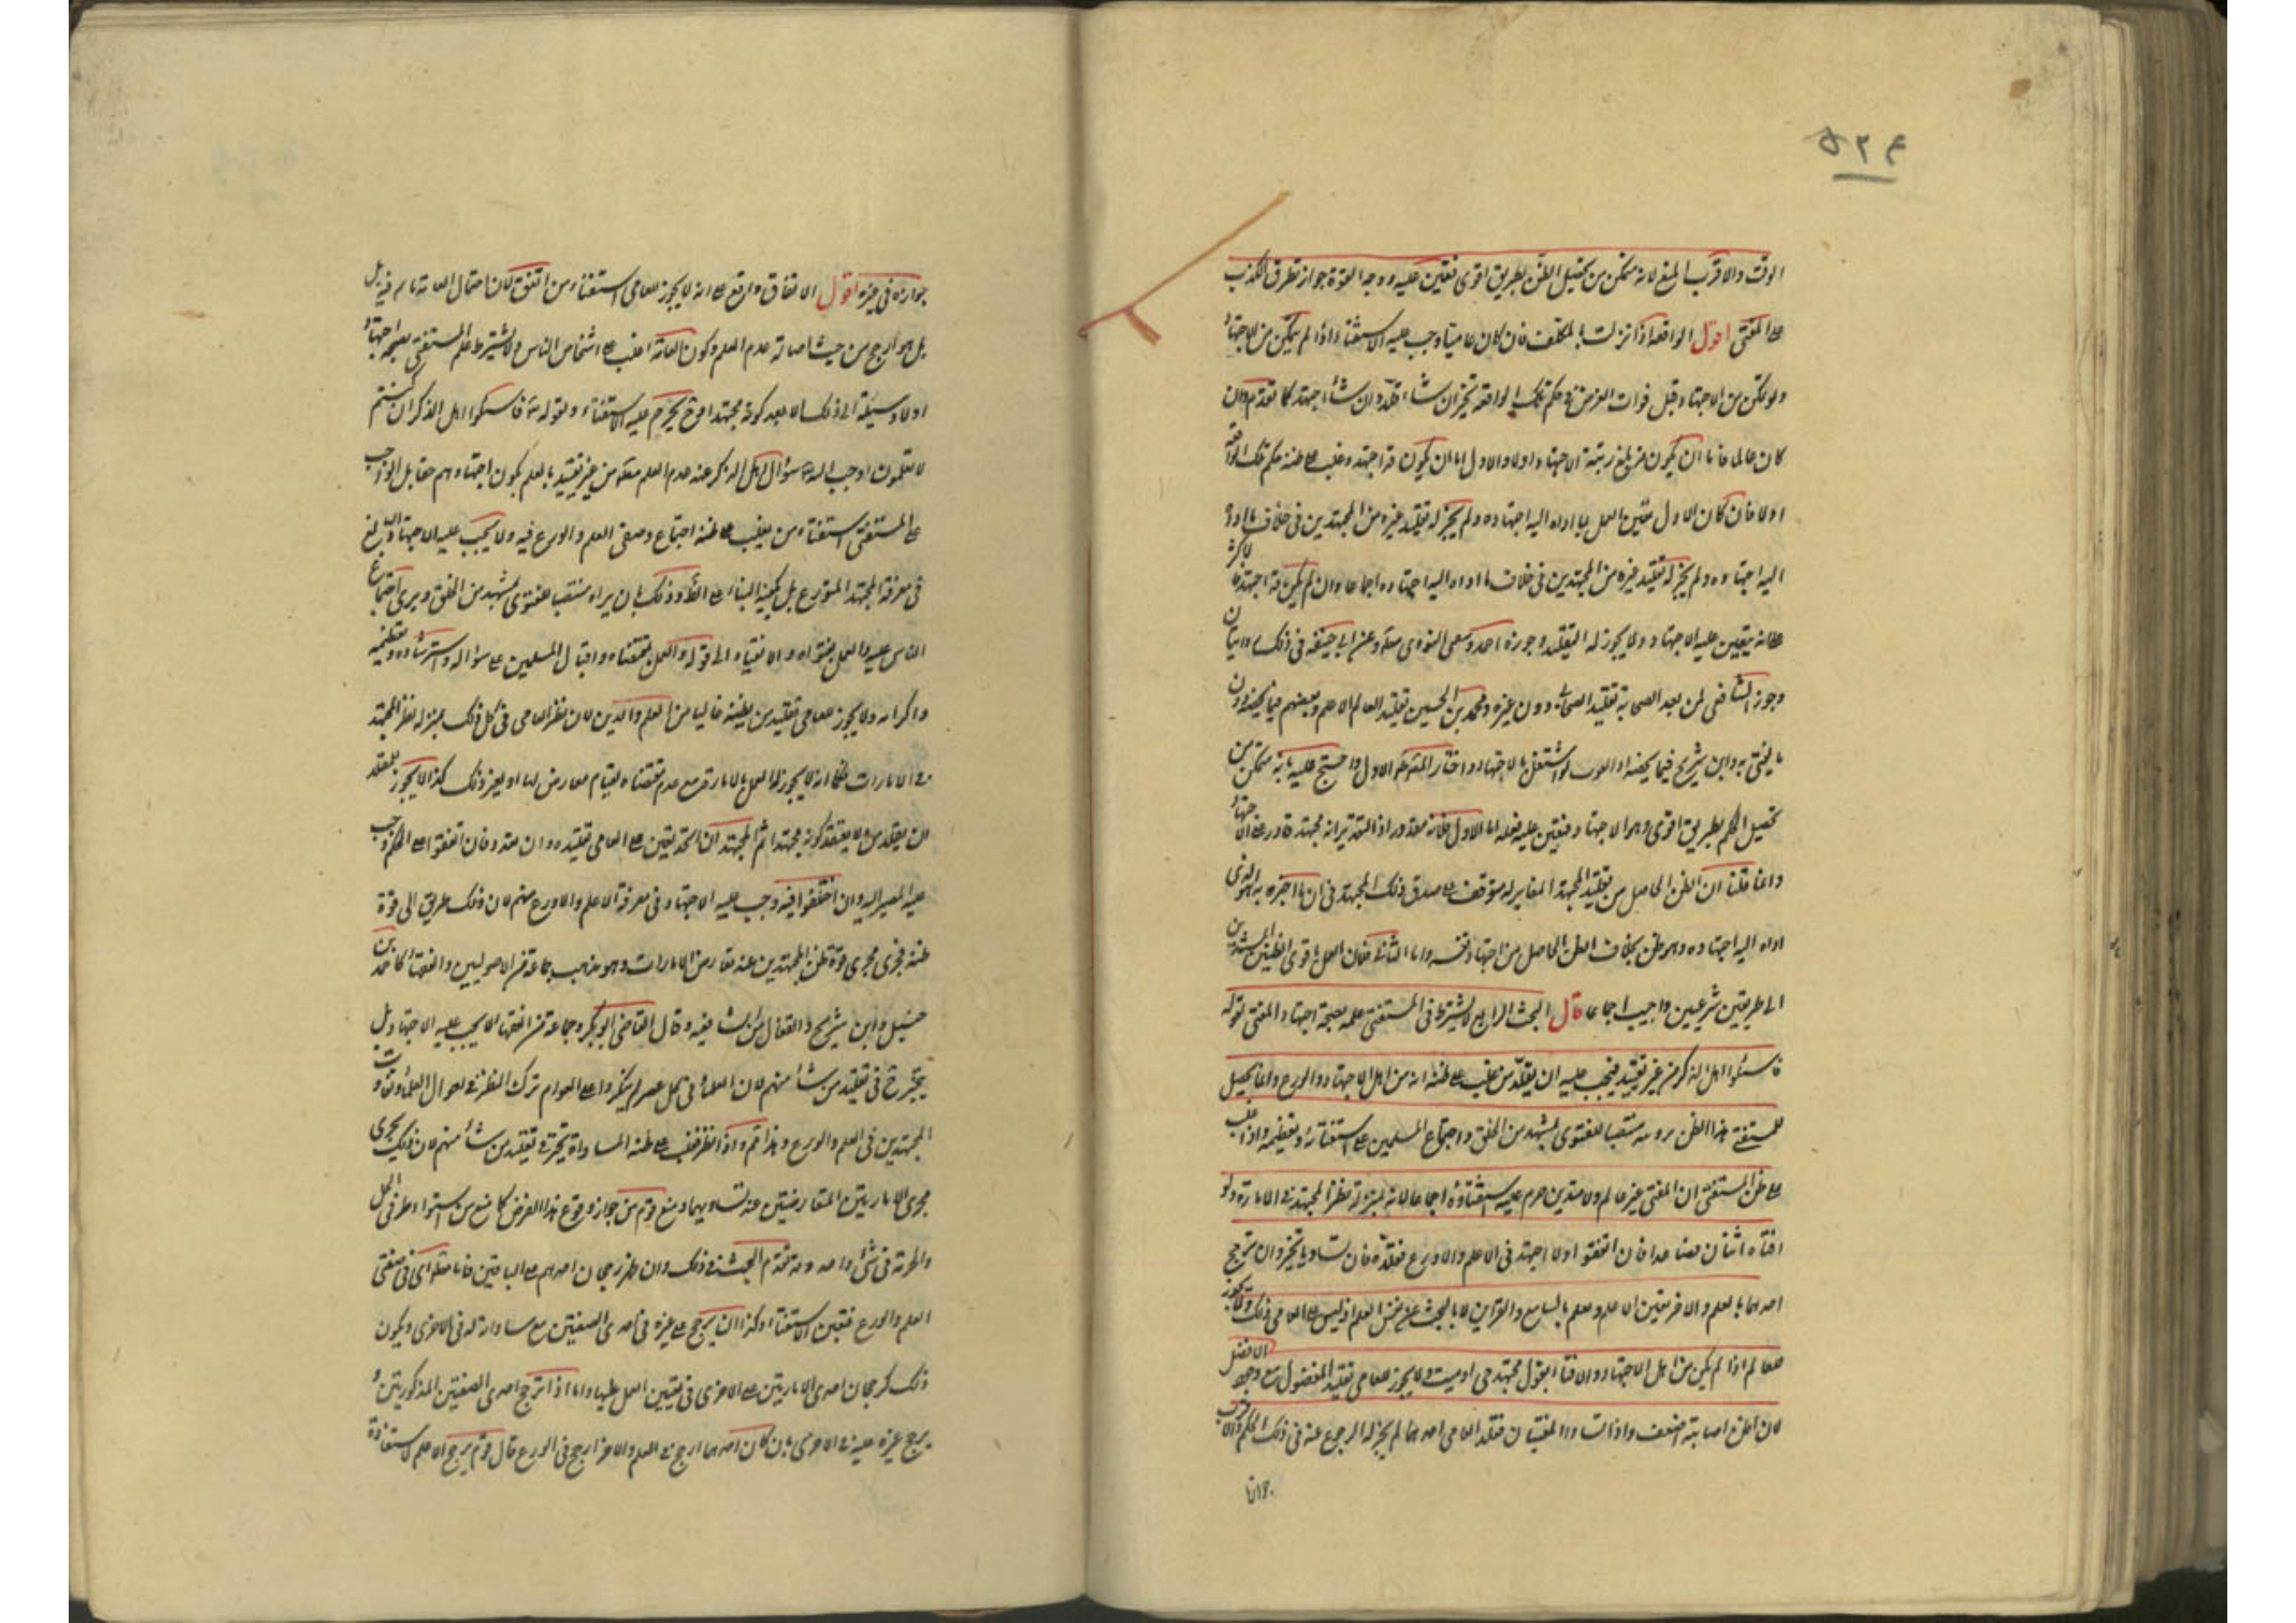 ۵۲۴
الوقت والاقرب المنع لانه متمكن من تحصيل الظن بطريق اقوى فتعين عليه ووجه القوة جواز تطرق الكذب
على المفتى اقول الواقعة اذا نزلت بالمكلف فان كان عاميا وجب عليه الاستفتاء واذا لم يتمكن من الاجتهاد
ولو تمكن من الاجتهاد قبل فوات الغرض فى حكم تلك الواقعة تخير ان شاء قلد وان شاء اجتهد كما تقدم وان
كان عالما فاما ان يكون قد بلغ رتبة الاجتهاد اولا والاول اما ان يكون قد اجتهد وغلب على ظنه حكم تلك الواقعة
اولا فان كان الاول تعين العمل بما اداه اليه اجتهاده ولم يجز له تقليد غيره من المجتهدين فى خلاف ما اداه
اليه اجتهاده ولم يجز له تقليد غيره من المجتهدين فى خلاف ما اداه اليه اجتهاده اجماعا وان لم يكن قد اجتهد فالاكثر
على انه يتعين عليه الاجتهاد ولا يجوز له التقليد وجوزه احمد وسفيان الثورى مطلقا وعن ابى حنيفة فى ذلك روايتان
وجوز الشافعى لمن بعد الصحابة تقليد الصحابة دون غيره ومحمد بن الحسين تقليد العالم الاعلم وبعضهم فيما يخصه دون
ما يفتى به وابن شريح فيما يخصه اذا لو اشتغل بالاجتهاد واختار المص الاول واحتج عليه بانه متمكن من
تحصيل الحكم بطريق اقوى وهو الاجتهاد فتعين عليه فعله اما الاول فلانه مقدور اذ التقدير انه مجتهد قادر على الاجتهاد
وانما قلنا ان الظن الحاصل من تقليد المجتهد المغاير له متوقف على صدق ذلك المجتهد فى ان ما اخبره به هو الذى
اداه اليه اجتهاده وهو ظن بخلاف الظن الحاصل من اجتهاد نفسه واما الثانى فلان العمل باقوى الظنين المستندين
الى طريقين شرعيين واجب اجماعا قال البحث الرابع لا يشترط فى المستفتى علمه بصحة اجتهاد المفتى لقوله
فاسئلوا اهل الذكر من غير تقييد فيجب عليه ان يقلد من يغلب على ظنه انه من اهل الاجتهاد والورع وانما يحصل
للمستفتى هذا الظن برؤيته منتصبا للفتوى بمشهد من الخلق واجتماع المسلمين على استفتائه وتعظيمه واذا غلب
على ظن المستفتى ان المفتى غير عالم ولا متدين حرم عليه استفتاؤه اجماعا لانه بمنزلة نظر المجتهد فى الامارة ولو
افتاه اثنان فصاعدا فان اتفقوا والا اجتهد فى الاعلم والاورع فقلده فان تساويا تخير وان ترجح
احدهما بالعلم والاخر تعين الاعلم ويعلم بالتسامع والقرائن لا بالبحث عن نفس العلم اذ ليس على العامى ذلك ولا يجوز
للعالم اذا لم يكن من اهل الاجتهاد والافتاء بقول مجتهد حى او ميت ولا يجوز للعامى تقليد المفضول مع وجود الافضل
لان ظن اصابته اضعف واذا تساوا المفتيان فقلد العامى احدهما لم يجز له الرجوع عنه فى ذلك الحكم والاقرب
جوازه
جوازه فى غيره اقول الاتفاق واقع على انه لا يجوز للعامى استفتاء من اتفق لان احتمال العامية قائم فيه بل
بل هو ارجح من حيث اصالة عدم العلم وكون العامة اغلب على اشخاص الناس ولا يشترط علم المستفتى بصحة اجتهاد
اولا وسيلة الى ذلك الا بعد كونه مجتهدا وح يحرم عليه الاستفتاء ولقوله تعالى فاسئلوا اهل الذكر ان كنتم
لا تعلمون اوجب الله سؤال اهل الذكر عند عدم العلم مطلقا من غير تقييد بالعلم بكون اجتهادهم حقا بل الواجب
على المستفتى استفتاء من يغلب على ظنه اجتماع وصفى العلم والورع فيه ولا يجب عليه الاجتهاد البالغ
فى معرفة المجتهد المتورع بل يكفيه البناء على الظاهر وذلك بان يراه منتصبا للفتوى بمشهد من الخلق ويرى اجتماع
الناس عليه والعمل بفتواه والانقياد الى قوله والعمل بمقتضاه واقبال المسلمين على سؤاله واسترشاده وتعظيمه
واكرامه ولا يجوز للعامى تقليد من يظنه خاليا من العلم والدين لان نظر العامى فى كل ذلك بمنزلة نظر المجتهد
فى الامارات فكما انه لا يجوز له العمل بالامارة مع عدم مقتضاه لقيام معارض لها او لغير ذلك كذا لا يجوز للمقلد
ان يقلد من لا يعتقد كونه مجتهدا ثم المجتهد ان اتحد تعين على العامى تقليده وان تعدد فان اتفقوا على الحكم وجب
عليه المصير اليه وان اختلفوا فيه وجب عليه الاجتهاد فى معرفة الاعلم والاورع منهم لان ذلك طريق الى قوة
ظنه فجرى مجرى قوة ظن المجتهدين عند تعارض الامارات وهو مذهب جماعة من الاصوليين والفقهاء كاحمد بن
حنبل وابن شريح والقفال من الشافعية وقال القاضى ابو بكر وجماعة من الفقهاء لا يجب عليه الاجتهاد بل
يتخير ح فى تقليد من شاء منهم لان العلماء فى كل عصر لم ينكروا على العوام ترك النظر فى احوال العلماء وتفاوت
المجتهدين فى العلم والورع وهذا قوى واذا نظر فغلب على ظنه المساواة تخير فى تقليد من شاء منهم لان ذلك يجرى
مجرى الامارتين المتعارضتين عند تساويهما ومنع قوم من جواز وقوع هذا الفرض كما منع من استواء طرفى الحل
والحرمة فى شئ واحد وقد تقدم البحث فى ذلك وان ظهر رجحان احدهم على الباقين فاما مطلقا اى فى صفتى
العلم والورع فتعين الاستفتاء وكذا ان يرجح على غيره فى احدى الصفتين مع مساواته له فى الاخرى ويكون
ذلك كرجحان احدى الامارتين على الاخرى فى تعيين العمل عليها واما اذا ترجح احدى الصفتين المذكورتين و
يرجح غيره عليه فى الاخرى بان كان احدهما ارجح فى العلم والاخر ارجح فى الورع قال قوم يرجح الاعلم لاستفادة